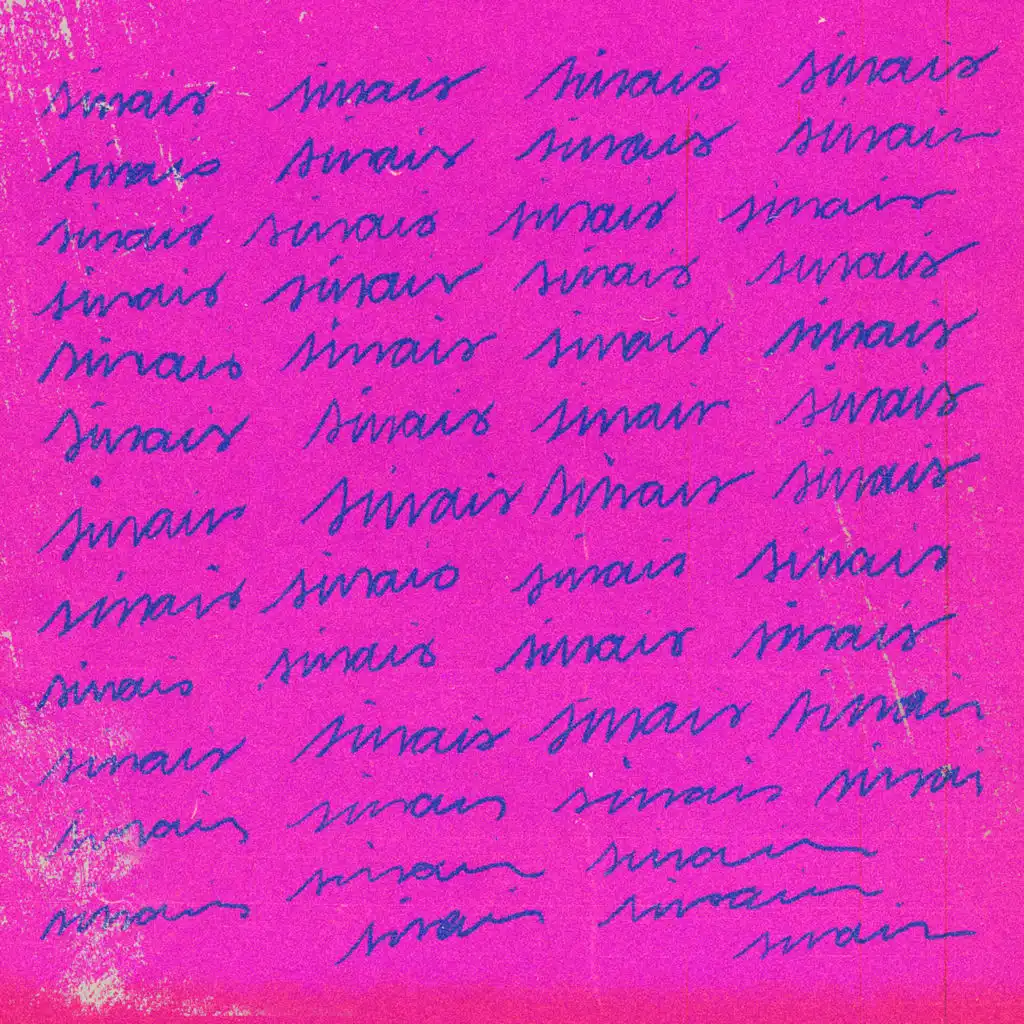 sinais sinais sinais sinais
sinais sinais sinais sinais
sinais sinais sinais sinais
sinais sinais sinais sinais
sinais sinais sinais sinais
sinais sinais sinais sinais
sinais sinais sinais sinais
sinais sinais sinais sinais
sinais sinais sinais sinais
sinais sinais sinais sinais
sinais sinais sinais sinais
sinais sinais sinais
sinais sinais
sinais